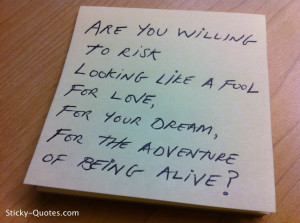 Are you willing
to risk
Looking like a fool
for love,
for your dream,
for the adventure
of being alive?
Sticky-Quotes.com